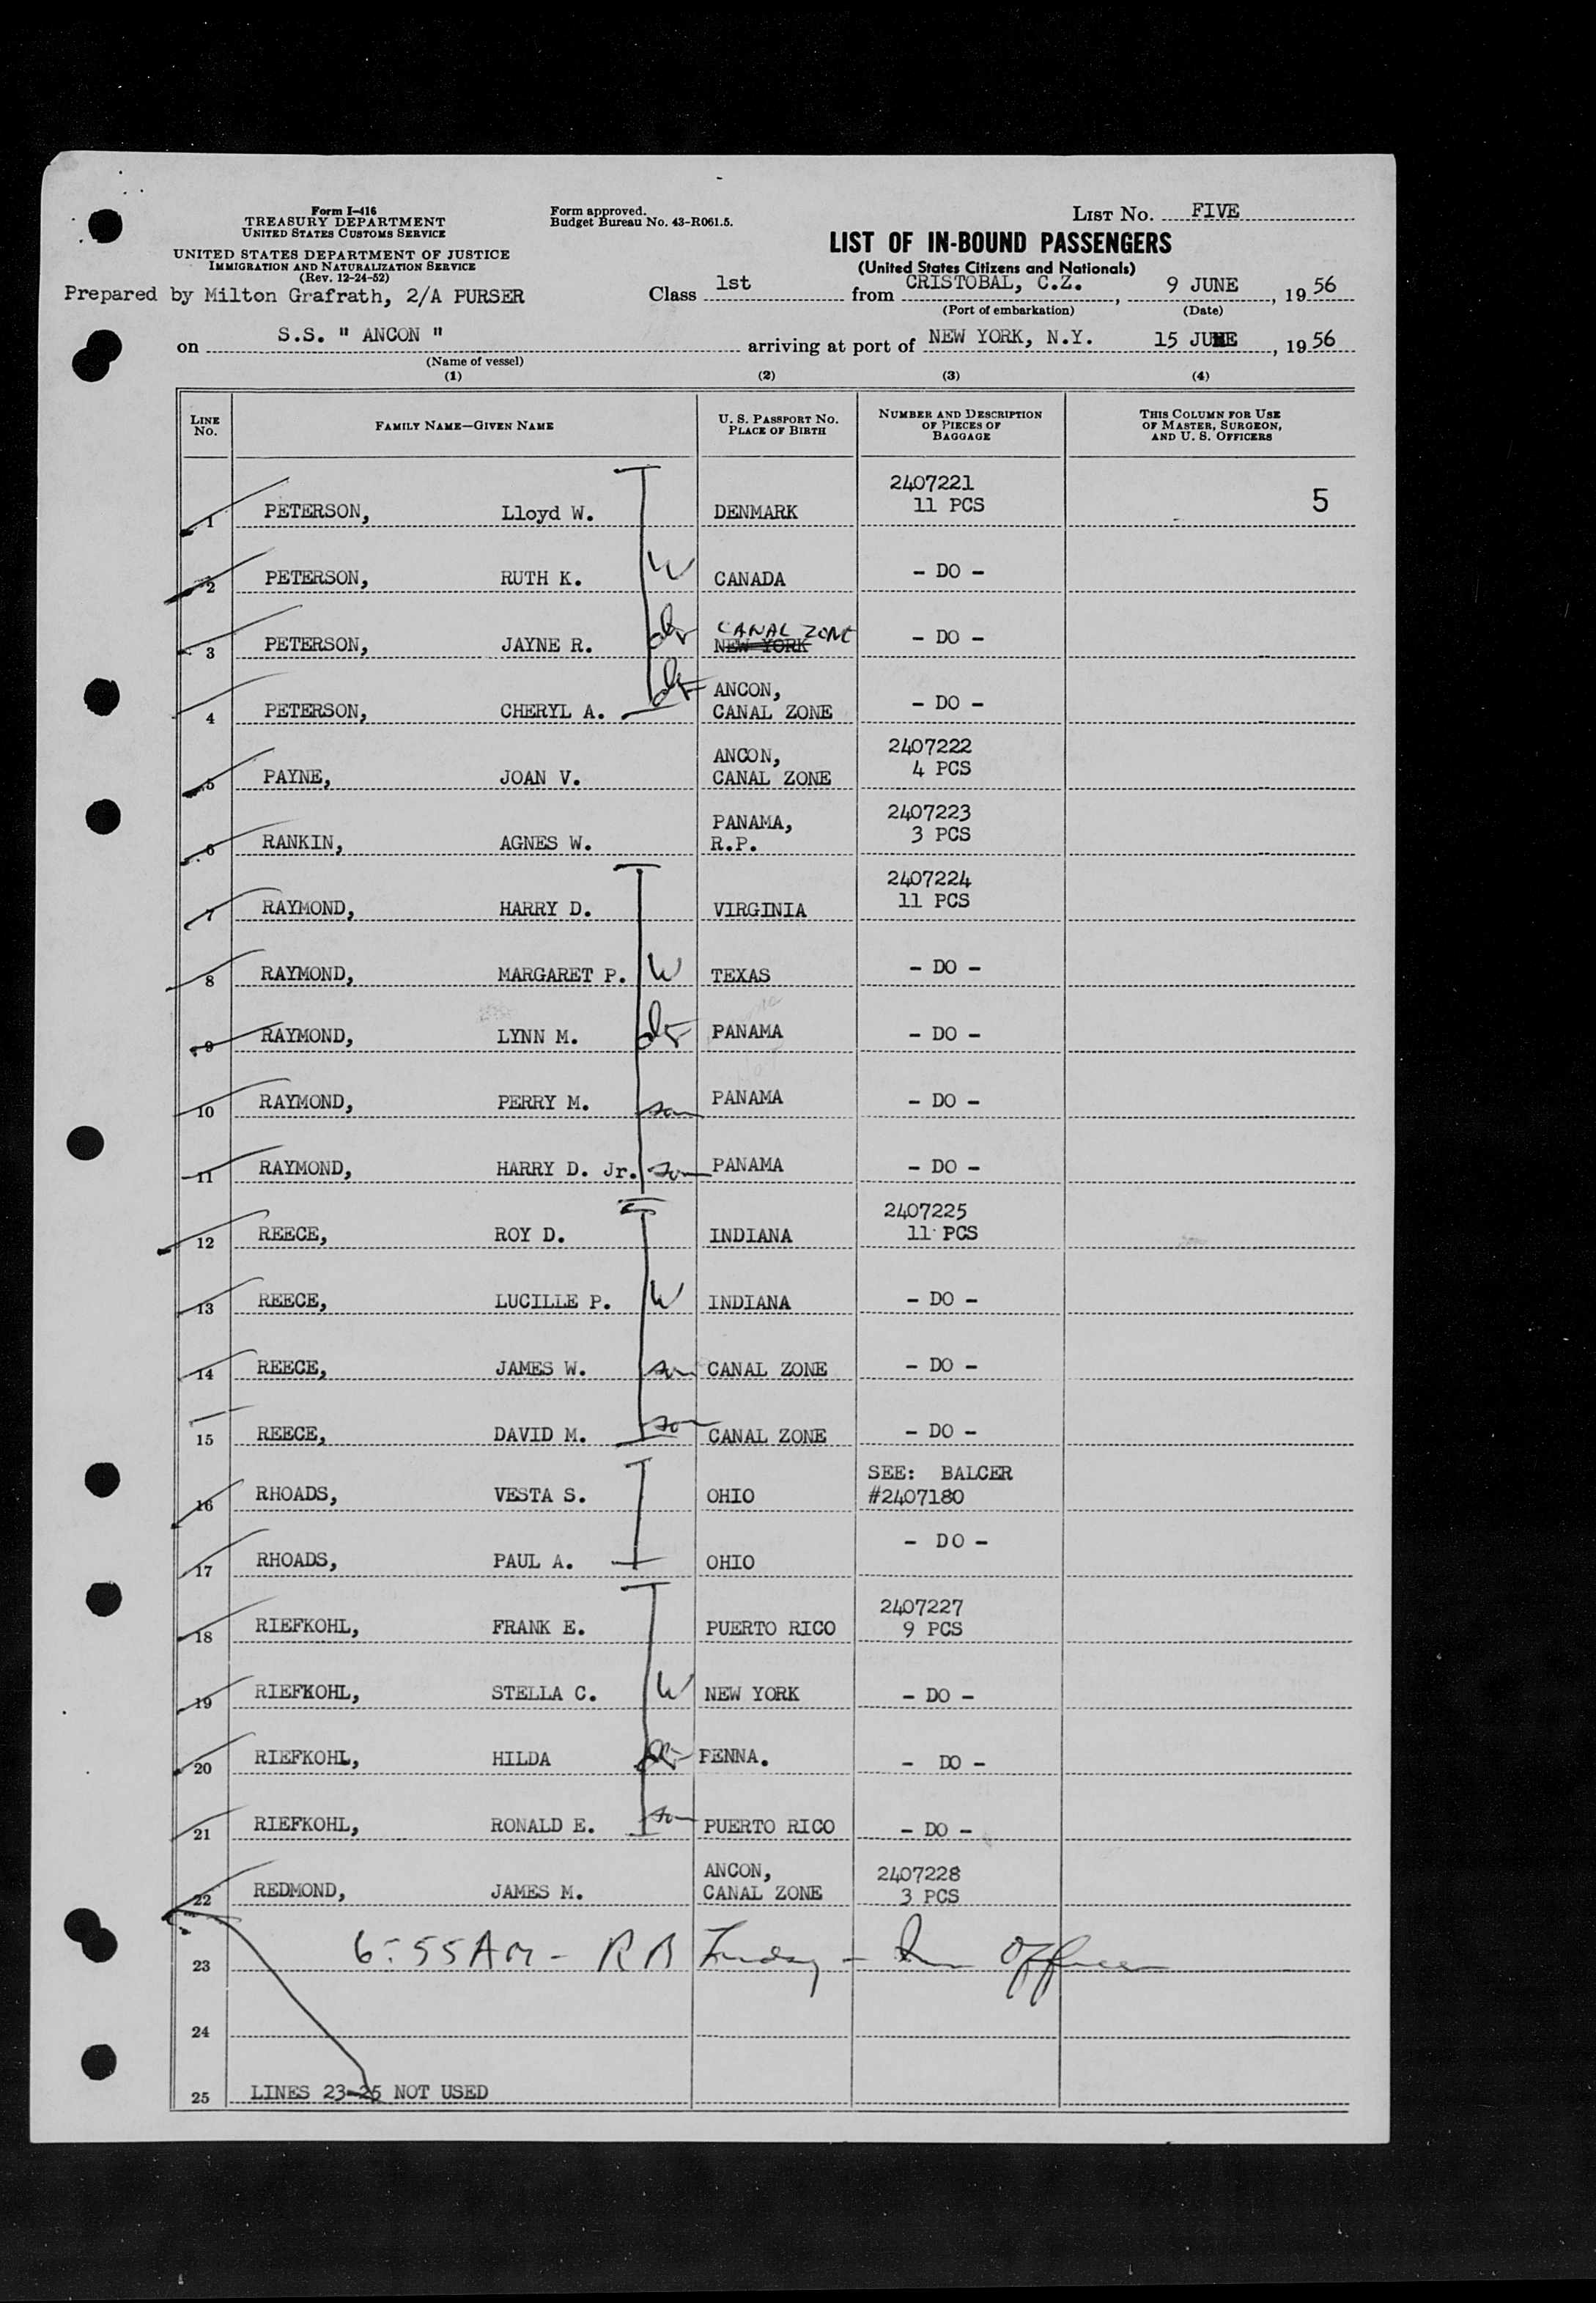 Form I-416
TREASURY DEPARTMENT
UNITED STATES CUSTOMS SERVICE
UNITED STATES DEPARTMENT OF JUSTICE
IMMIGRATION AND NATURALIZATION SERVICE
(Rev. 12-24-52)
Form approved.
Budget Bureau No. 43-R061.5.
LIST NO. FIVE
LIST OF IN-BOUND PASSENGERS
(United States Citizens and Nationals)
Prepared by Milton Grafrath, 2/A PURSER
Class 1st from CRISTOBAL, C.Z., 9 JUNE, 1956
(Port of embarkation) (Date)
on S.S. " ANCON " arriving at port of NEW YORK, N.Y. 15 JUNE, 1956
(Name of vessel)
(1) (2) (3) (4)
LINE NO. FAMILY NAME—GIVEN NAME U. S. PASSPORT NO. PLACE OF BIRTH NUMBER AND DESCRIPTION OF PIECES OF BAGGAGE THIS COLUMN FOR USE OF MASTER, SURGEON, AND U. S. OFFICERS
1 PETERSON, Lloyd W. DENMARK 2407221 11 PCS 5
2 PETERSON, RUTH K. W CANADA - DO -
3 PETERSON, JAYNE R. dr CANAL ZONE NEW YORK - DO -
4 PETERSON, CHERYL A. dr ANCON, CANAL ZONE - DO -
5 PAYNE, JOAN V. ANCON, CANAL ZONE 2407222 4 PCS
6 RANKIN, AGNES W. PANAMA, R.P. 2407223 3 PCS
7 RAYMOND, HARRY D. VIRGINIA 2407224 11 PCS
8 RAYMOND, MARGARET P. W TEXAS - DO -
9 RAYMOND, LYNN M. dr PANAMA - DO -
10 RAYMOND, PERRY M. son PANAMA - DO -
11 RAYMOND, HARRY D. Jr. son PANAMA - DO -
12 REECE, ROY D. INDIANA 2407225 11 PCS
13 REECE, LUCILLE P. W INDIANA - DO -
14 REECE, JAMES W. son CANAL ZONE - DO -
15 REECE, DAVID M. son CANAL ZONE - DO -
16 RHOADS, VESTA S. OHIO SEE: BALCER #2407180
17 RHOADS, PAUL A. OHIO - DO -
18 RIEFKOHL, FRANK E. PUERTO RICO 2407227 9 PCS
19 RIEFKOHL, STELLA C. W NEW YORK - DO -
20 RIEFKOHL, HILDA dr PENNA. - DO -
21 RIEFKOHL, RONALD E. son PUERTO RICO - DO -
22 REDMOND, JAMES M. ANCON, CANAL ZONE 2407228 3 PCS
23 6:55AM - R B - Officer
24
25 LINES 23-25 NOT USED